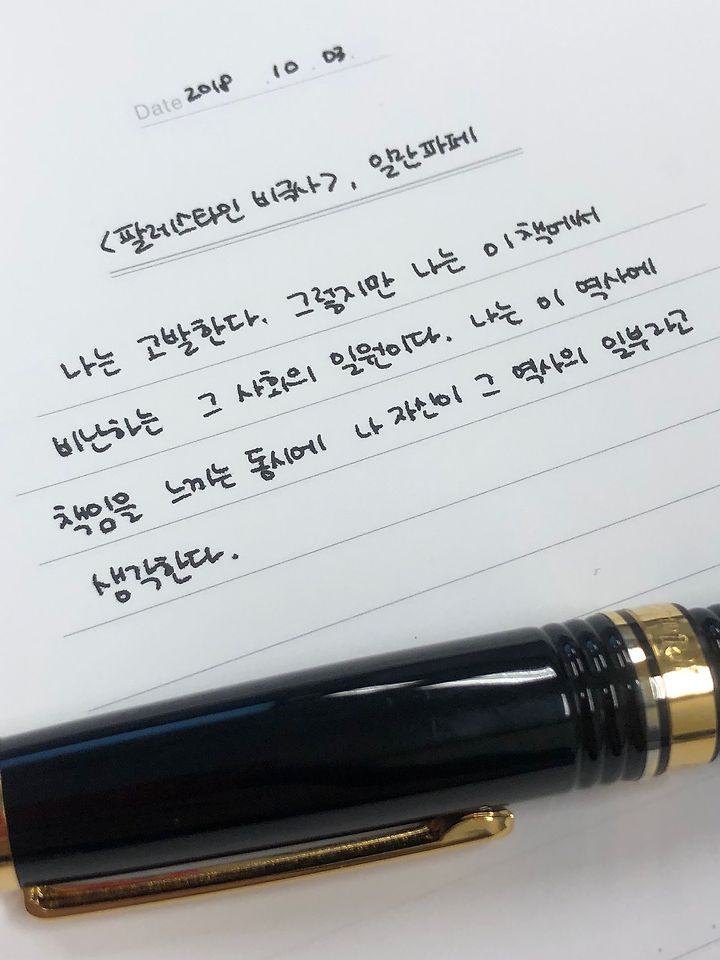 Date 2018 . 10 . 03.
<팔레스타인 비극사>, 일란파페
나는 고발한다. 그렇지만 나는 이 책에서
비난하는 그 사회의 일원이다. 나는 이 역사에
책임을 느끼는 동시에 나 자신이 그 역사의 일부라고
생각한다.